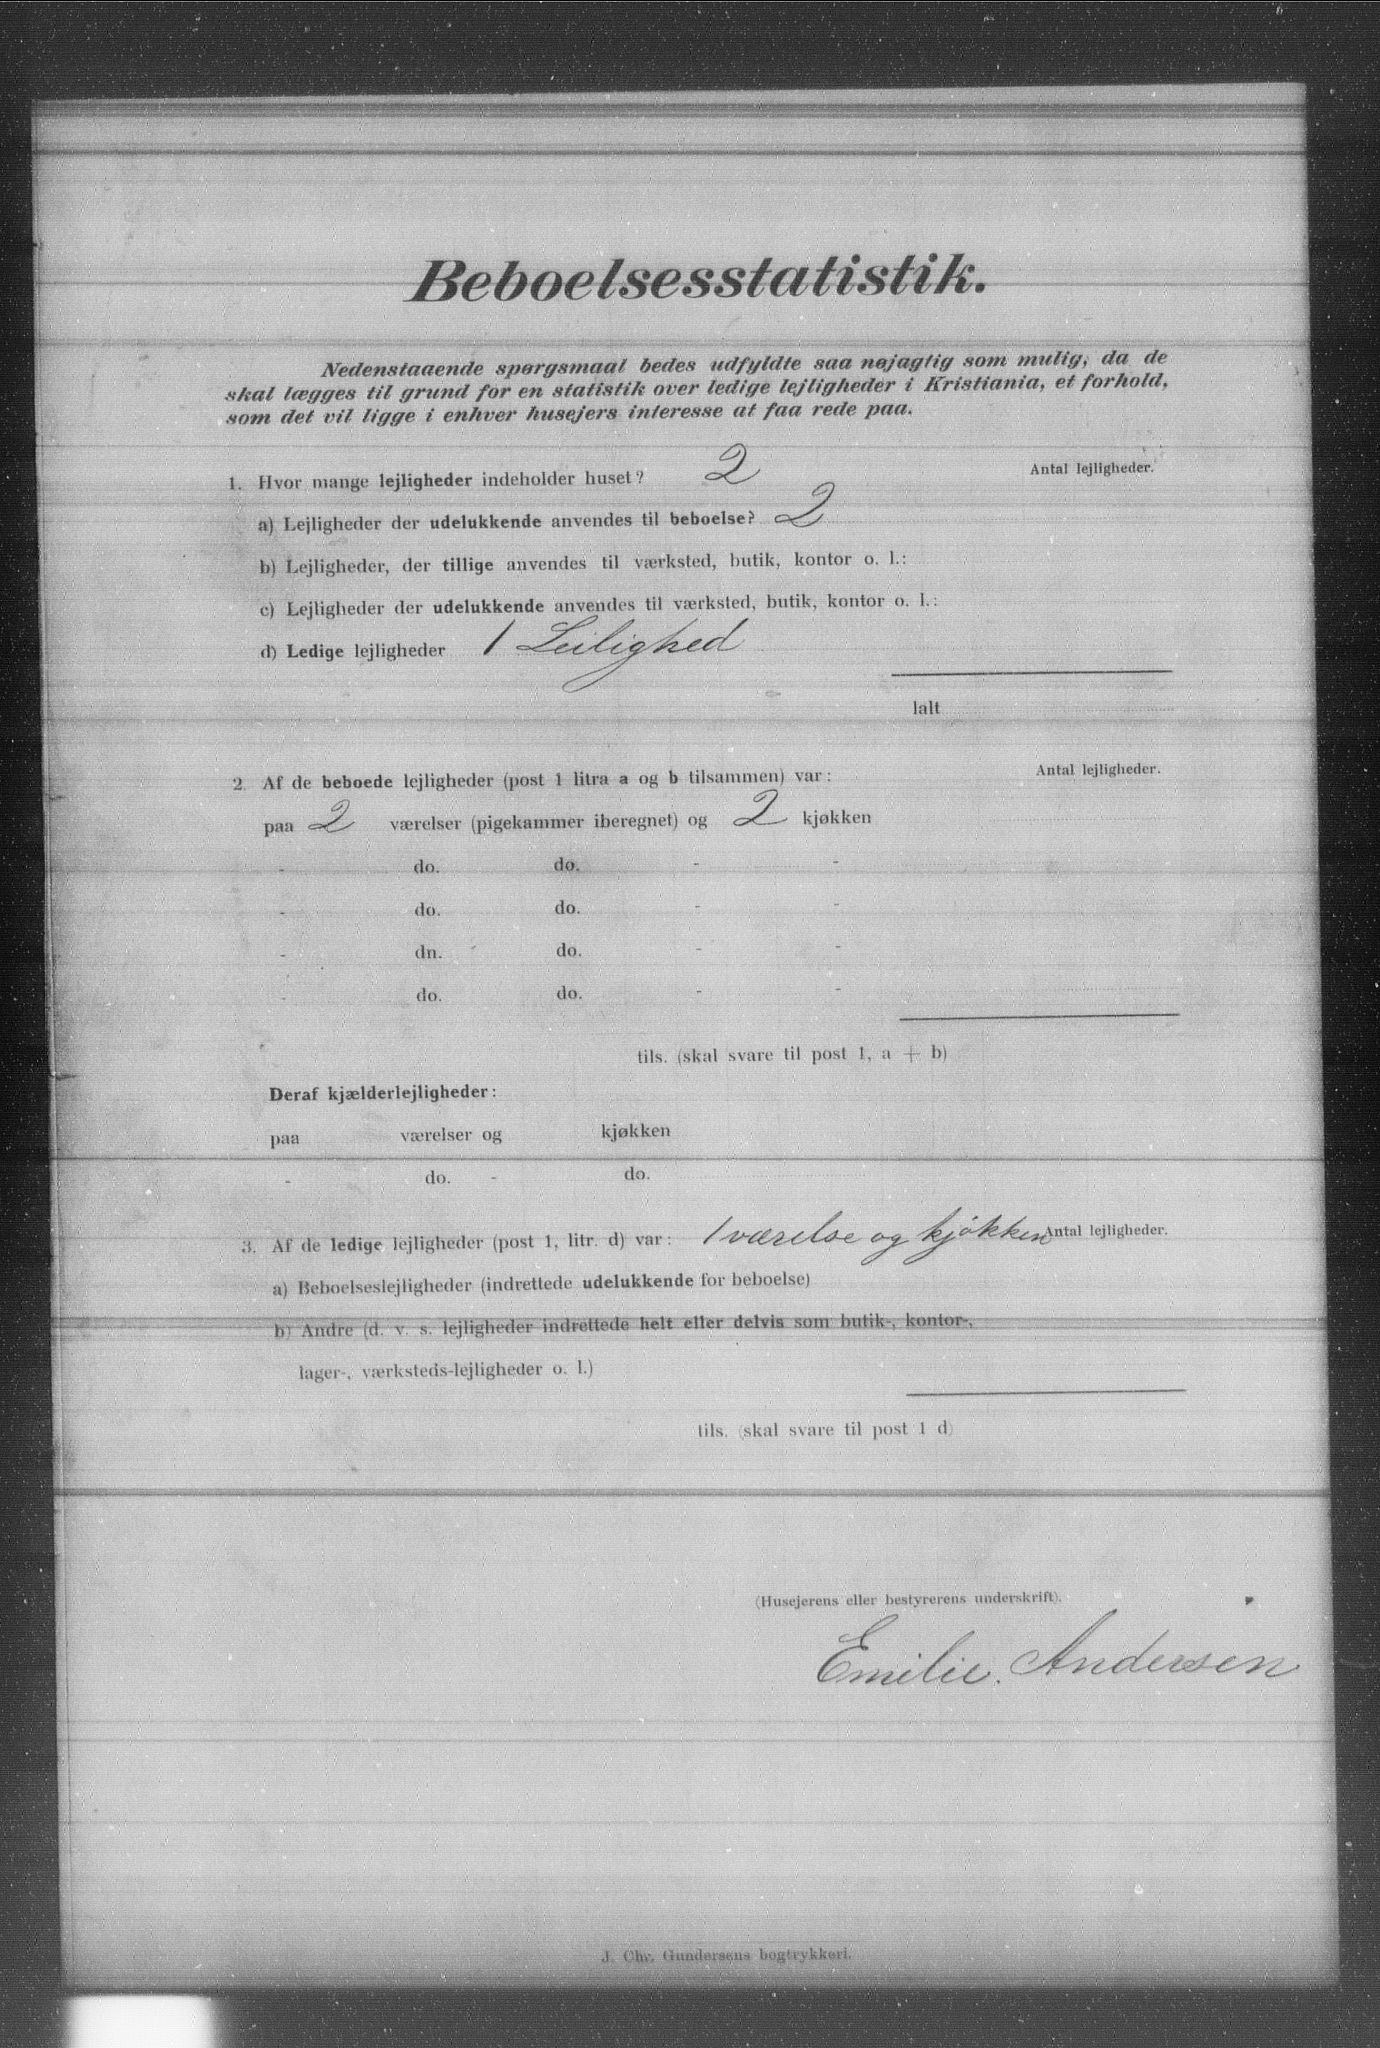 Beboelsesstatistik.
Nedenstaaende spørgsmaal bedes udfyldte saa nøjagtig som mulig, da de
skal lægges til grund for en statistik over ledige lejligheder i Kristiania, et forhold,
som det vil ligge i enhver husejers interesse at faa rede paa.
1. Hvor mange lejligheder indeholder huset? 2 Antal lejligheder.
a) Lejligheder der udelukkende anvendes til beboelse? 2
b) Lejligheder, der tillige anvendes til værksted, butik, kontor o. l.:
c) Lejligheder der udelukkende anvendes til værksted, butik, kontor o. l.:
d) Ledige lejligheder 1 Leilighed
Ialt
2. Af de beboede lejligheder (post 1 litra a og b tilsammen) var: Antal lejligheder.
paa 2 værelser (pigekammer iberegnet) og 2 kjøkken
- do. do. - -
- do. do. - -
- dn. do. - -
- do. do. - -
tils. (skal svare til post 1, a + b)
Deraf kjælderlejligheder:
paa værelser og kjøkken
- do. - do.
3. Af de ledige lejligheder (post 1, litr. d) var: 1 værelse og kjøkken Antal lejligheder.
a) Beboelseslejligheder (indrettede udelukkende for beboelse)
b) Andre (d. v. s. lejligheder indrettede helt eller delvis som butik-, kontor-,
lager-, værksteds-lejligheder o. l.)
tils. (skal svare til post 1 d)
(Husejerens eller bestyrerens underskrift).
Emilie. Andersen
J. Chr. Gundersens bogtrykkeri.